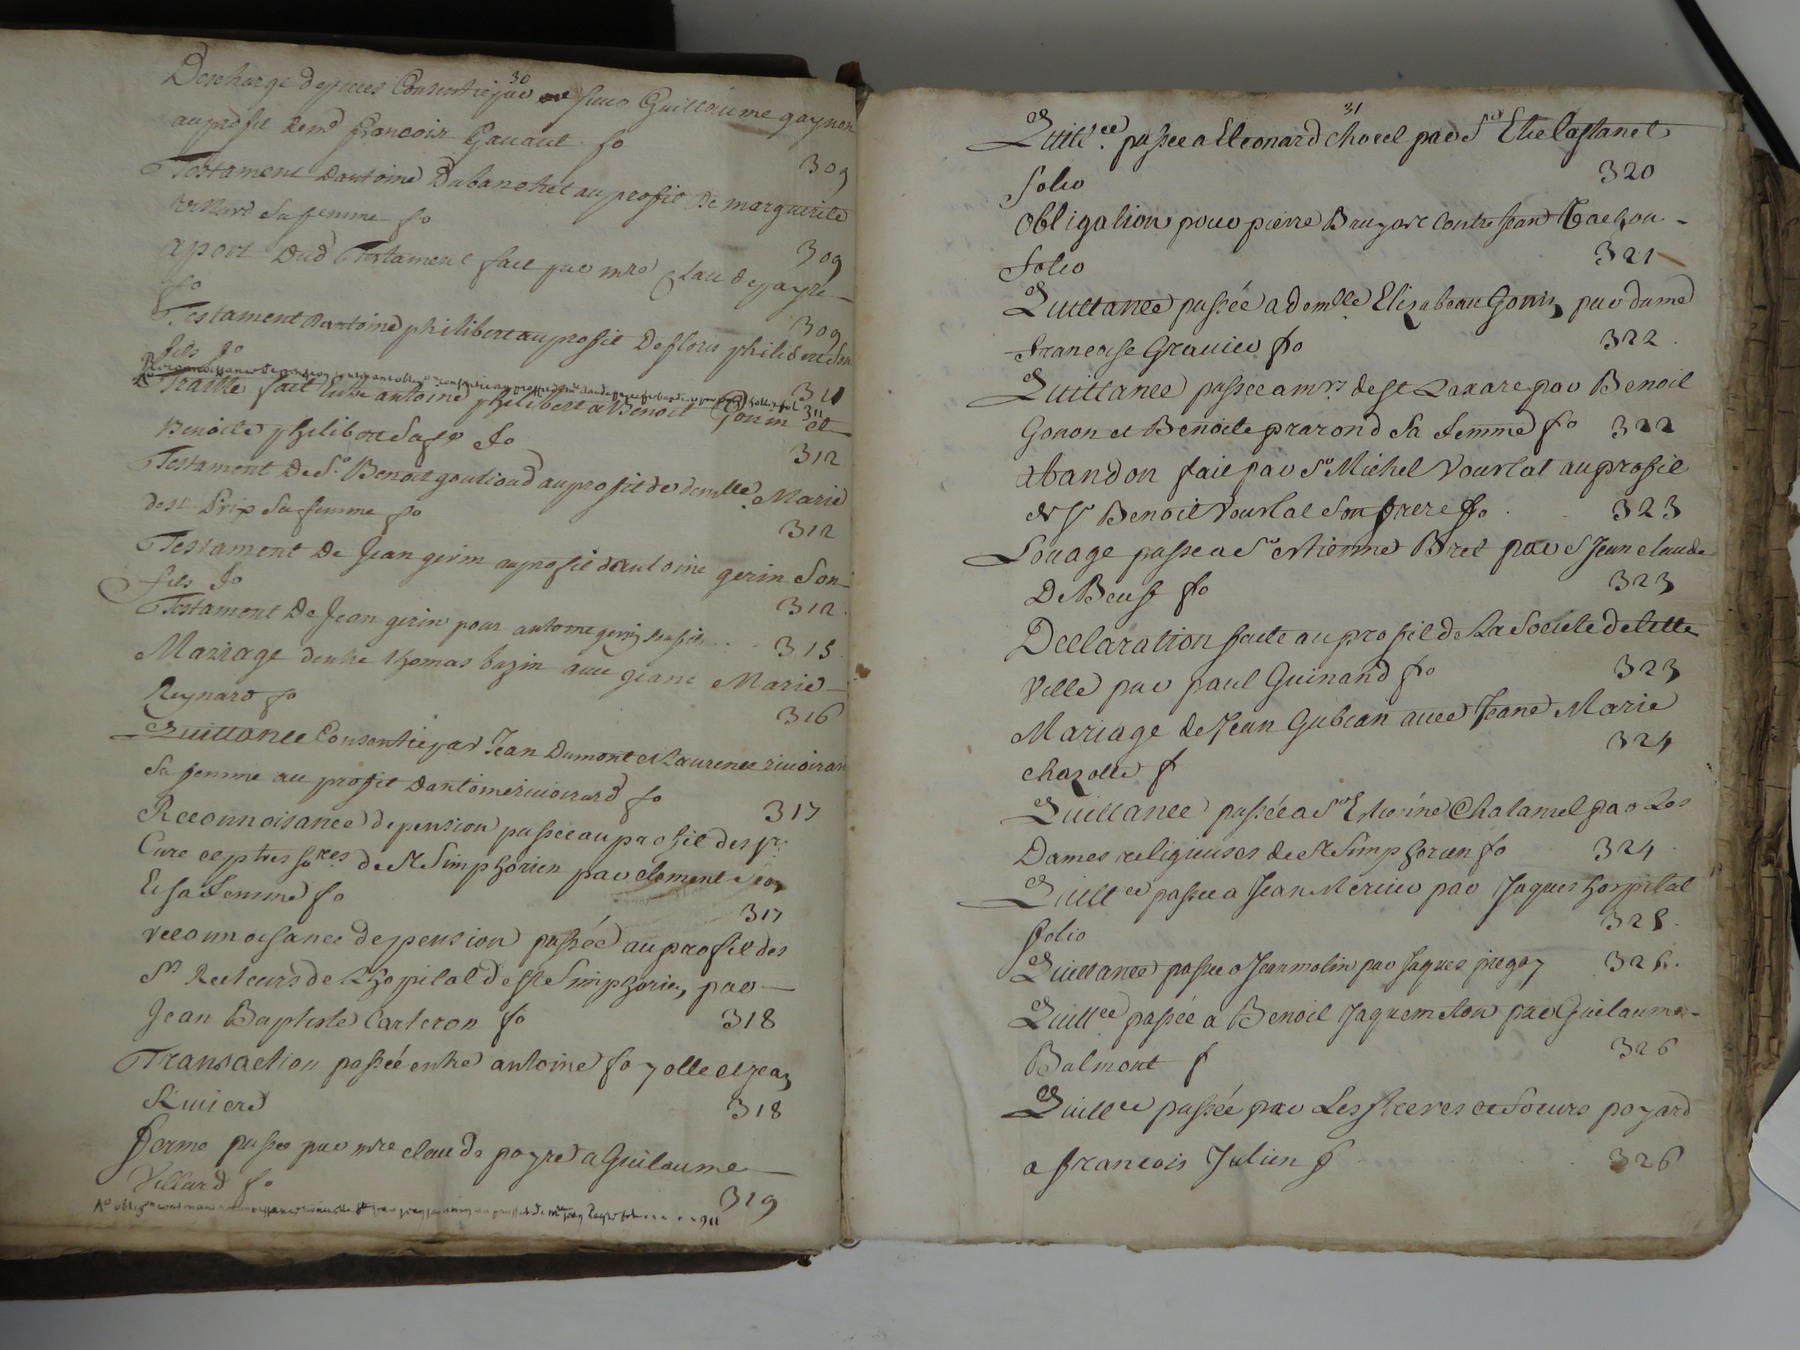 30
Descharge depieces Consentie par Guillaume gaynon
au profit de François Gavaut fo
309
Testament Dantoine Dubanchet au profit De marguerite
Sa femme fo
309
aport Dud Testament fait par mre Claude payre
fo
309
Testament Dantoine philibert au profit De fleurs philibert Son
fils fo
311
Traitté fait Entre antoine philibert et Benoit Gonin et
Benoite philibert Sa fe fo
312
Testament De Sr Benoit goutioud au profit de demlle Marie
de st Prix Sa femme fo
312
Testament De Jean gerin au profit dantoine gerin Son
fils fo
312
Testament De Jean gerin pour antoine gerin Son fils
315
Mariage dentre thomas bazin avec jeane Marie
Reynard fo
316
Quittance Consentie par Jean Dumont et Laurence rivoirard
Sa femme au profit Dantoine rivoirard fo
317
Reconnoisance de pension passée au profit des Srs
Cure et ptres de St Simphorien par clement
Et sa Femme fo
317
reconnoisance de pension passée au profit des
Srs Recteurs de Lhopital de St Simphorien, par
Jean Baptiste Carteron fo 318
Transaction passée entre antoine foyolle et jean
Riviere
318
ferme passée par mre claude payre a Guilaume
Villard fo
319
31
Quittce passée a Leonard Chorel par Sr Elie Castanet
folio 320
Obligation pour pierre Bruyas Contre Jean Tachou
folio 321
Quittance passée a demlle Elizabeau Gonin par dame
francoise Gravier fo 322
Quittance passée a mrs de St Lazare par Benoit
Gonon et Benoite prarond Sa femme fo 322
Abandon fait par Sr Michel Vourlat au profit
de Sr Benoit Vourlat Son frere fo 323
Louage passé a Sr Etienne Bret par S Jean claude
De Beuf fo 323
Declaration faite au profit de La Societe de cette
Ville par paul Guinand fo 323
Mariage de Jean Gubian avec Jeane Marie
chazotte f 324
Quittance passée a Sr Etienne Chalamel par Les
Dames religieuses de St Simphorien fo 324
Quittce passée a Jean Mercier par Jaques hospital
folio 325
Quittance passée a Jean molin par Jaques 326
Quittce passée a Benoit Jaquemeton par Guilaume
Balmont f 326
Quittce passée par Les freres et Soeurs poyard
a francois Julien f 326